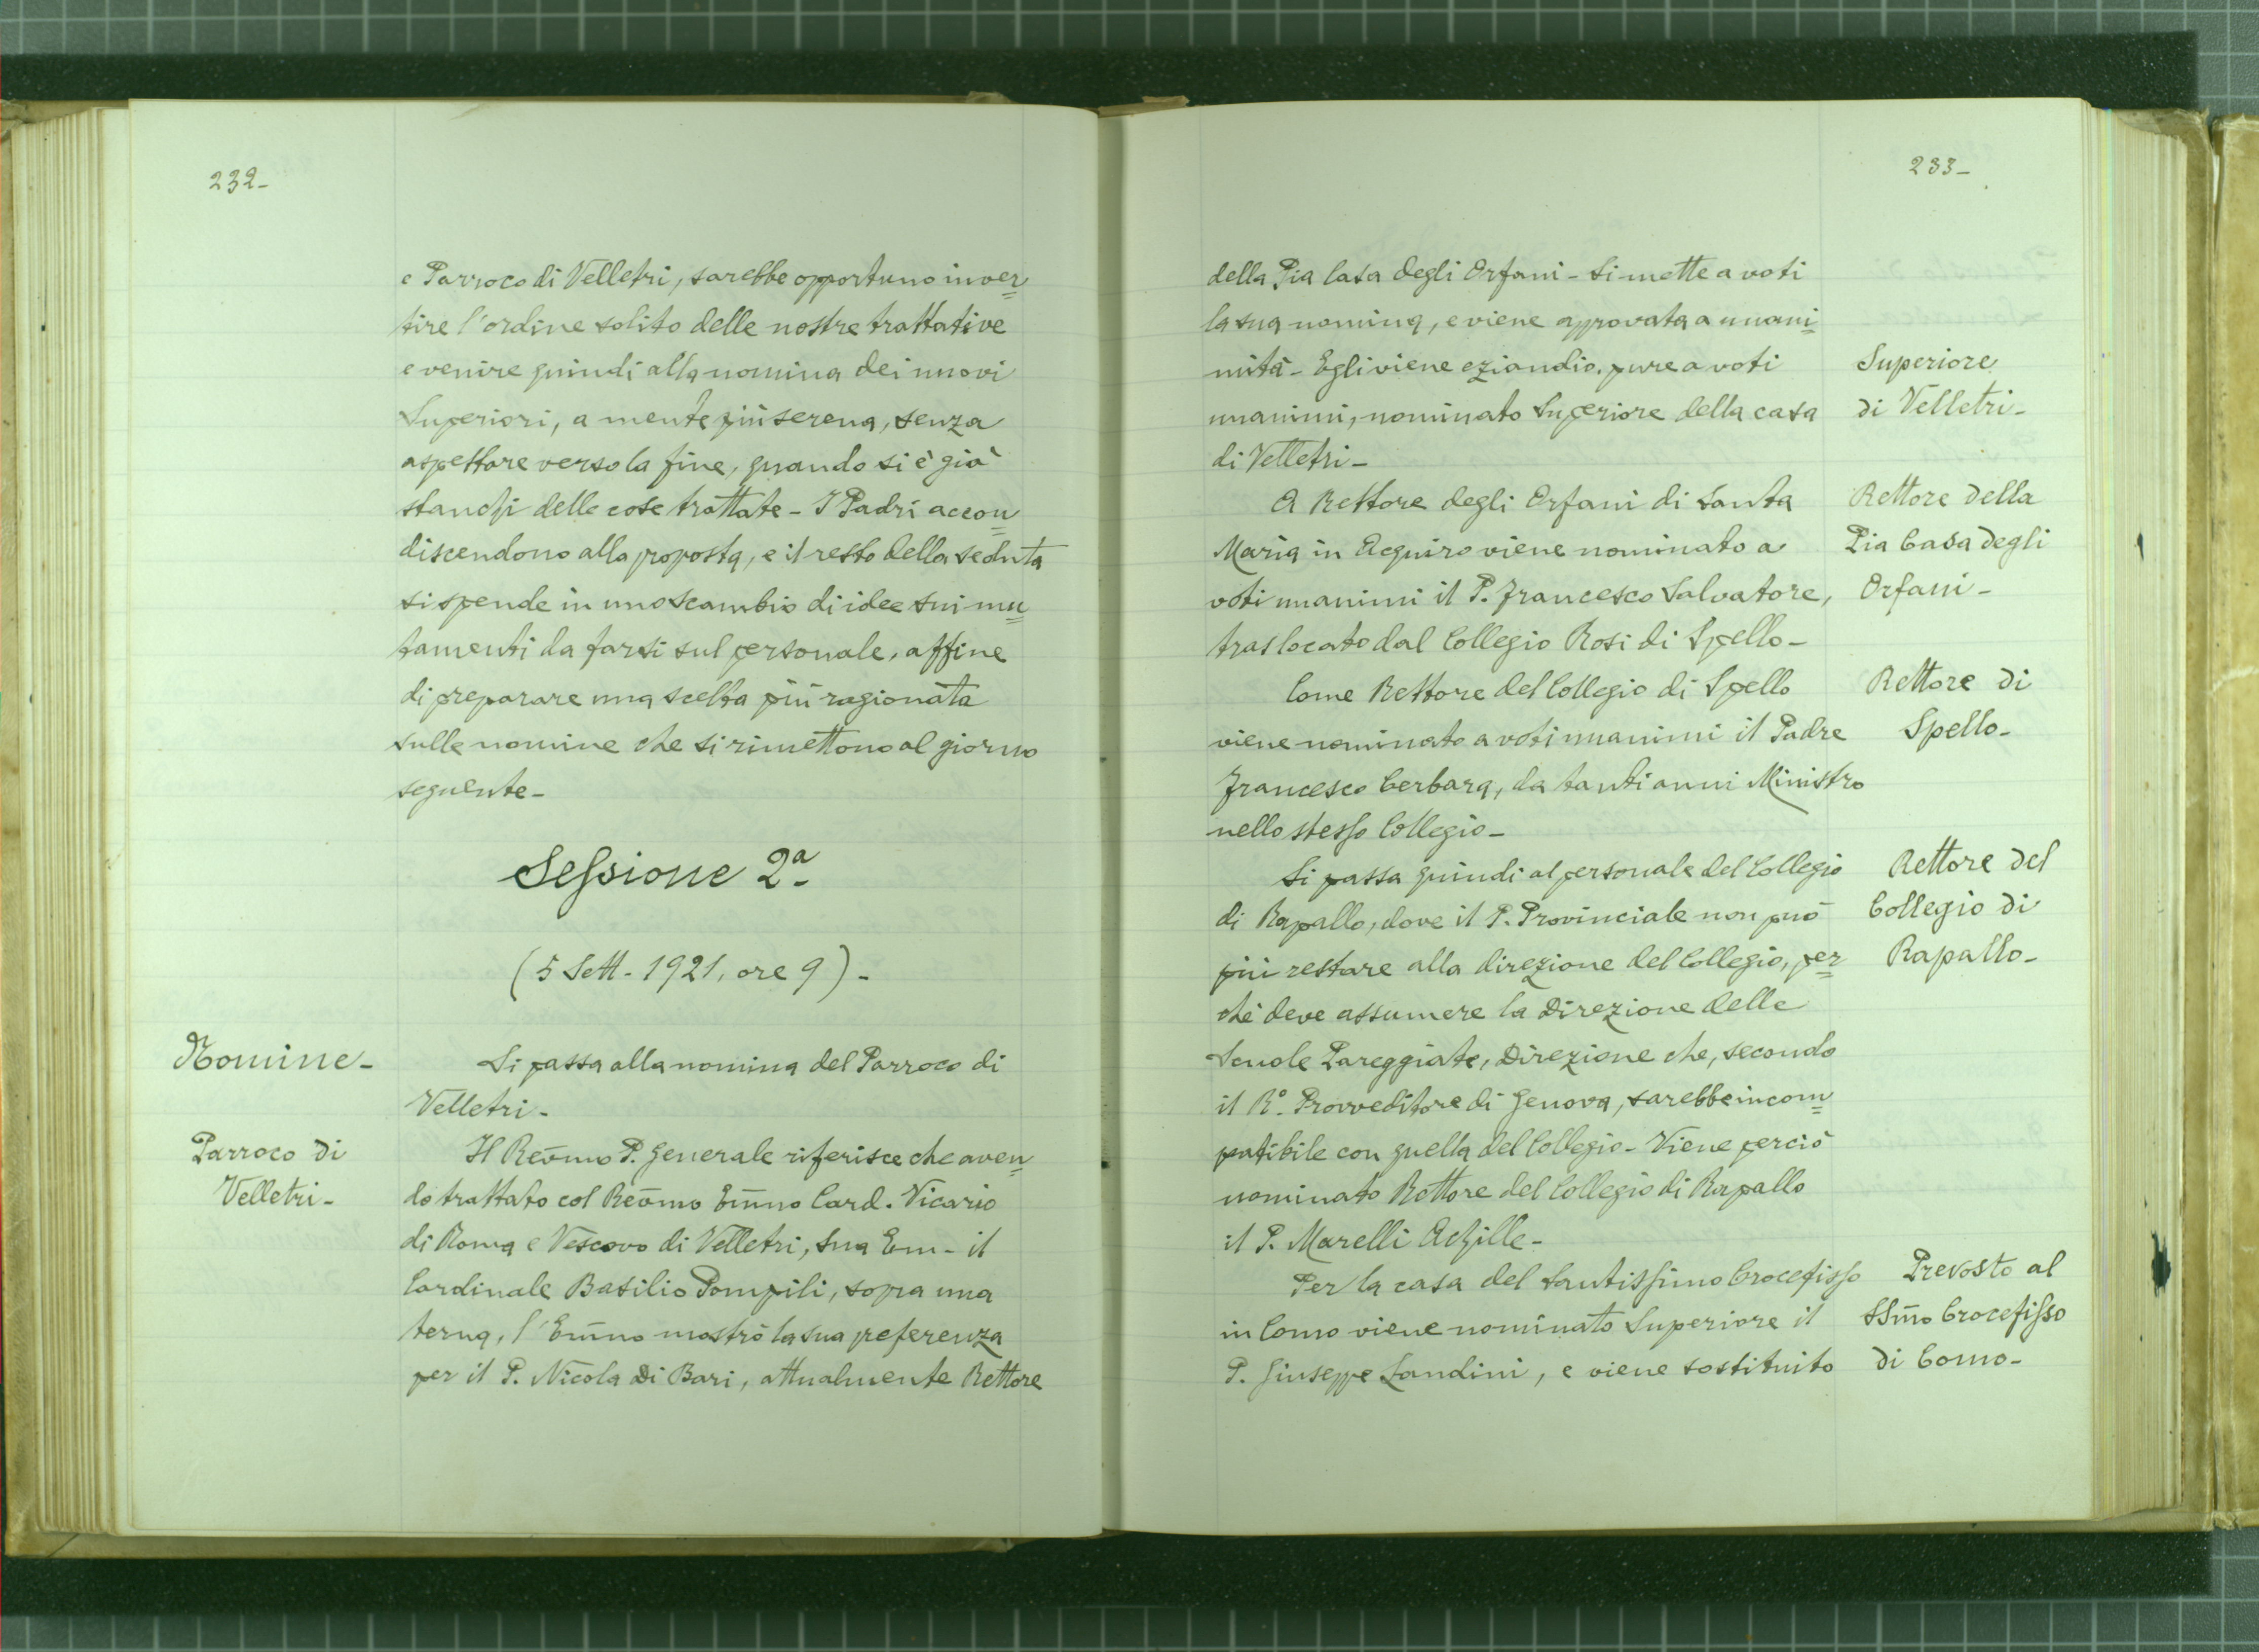 232-
e Parroco di Velletri, sarebbe opportuno inver=
tire l'ordine solito delle nostre trattative
e venire quindi alla nomina dei nuovi
Superiori, a mente più serena, senza
aspettare verso la fine, quando si è già
stanchi delle cose trattate - I Padri accon=
discendono alla proposta, e il resto della seduta
si spende in uno scambio di idee sui mu=
tamenti da farsi sul personale, affine
di preparare una scelta più ragionata
sulle nomine che si rimettono al giorno
seguente -
Sessione 2ª
(5 Sett. - 1921, ore 9) -
Nomine -
Si passa alla nomina del Parroco di
Velletri -
Parroco di
Velletri -
Il Reūmo P. Generale riferisce che aven=
do trattato col Reūmo Em̄mo Card. Vicario
di Roma e Vescovo di Velletri, Sua Em - il
Cardinale Basilio Pompili, sopra una
terna, l'Em̄mo mostrò la sua preferenza
per il P. Nicola Di Bari, attualmente Rettore
233-
della Pia Casa degli Orfani - Si mette a voti
la sua nomina, e viene approvata a unani=
mità - Egli viene eziandio, pure a voti
unanimi, nominato Superiore della casa
di Velletri -
Superiore
di Velletri -
A Rettore degli Orfani di Santa
Maria in Acquiro viene nominato a
voti unanimi il P. Francesco Salvatore,
traslocato dal Collegio Rosi di Spello -
Rettore della
Pia Casa degli
Orfani -
Come Rettore del Collegio di Spello
viene nominato a voti unanimi il Padre
Francesco Cerbara, da tanti anni Ministro
nello stesso Collegio -
Rettore di
Spello -
Si passa quindi al personale del Collegio
di Rapallo, dove il P. Provinciale non può
più restare alla direzione del Collegio, per=
chè deve assumere la Direzione delle
Scuole Pareggiate, Direzione che, secondo
il R.° Provveditore di Genova, sarebbe incom=
patibile con quella del Collegio - Viene perciò
nominato Rettore del Collegio di Rapallo
il P. Marelli Achille -
Rettore del
Collegio di
Rapallo -
Per la casa del Santissimo Crocefisso
in Como viene nominato Superiore il
P. Giuseppe Landini, e viene sostituito
Prevosto al
SSm̄o Crocefisso
di Como -